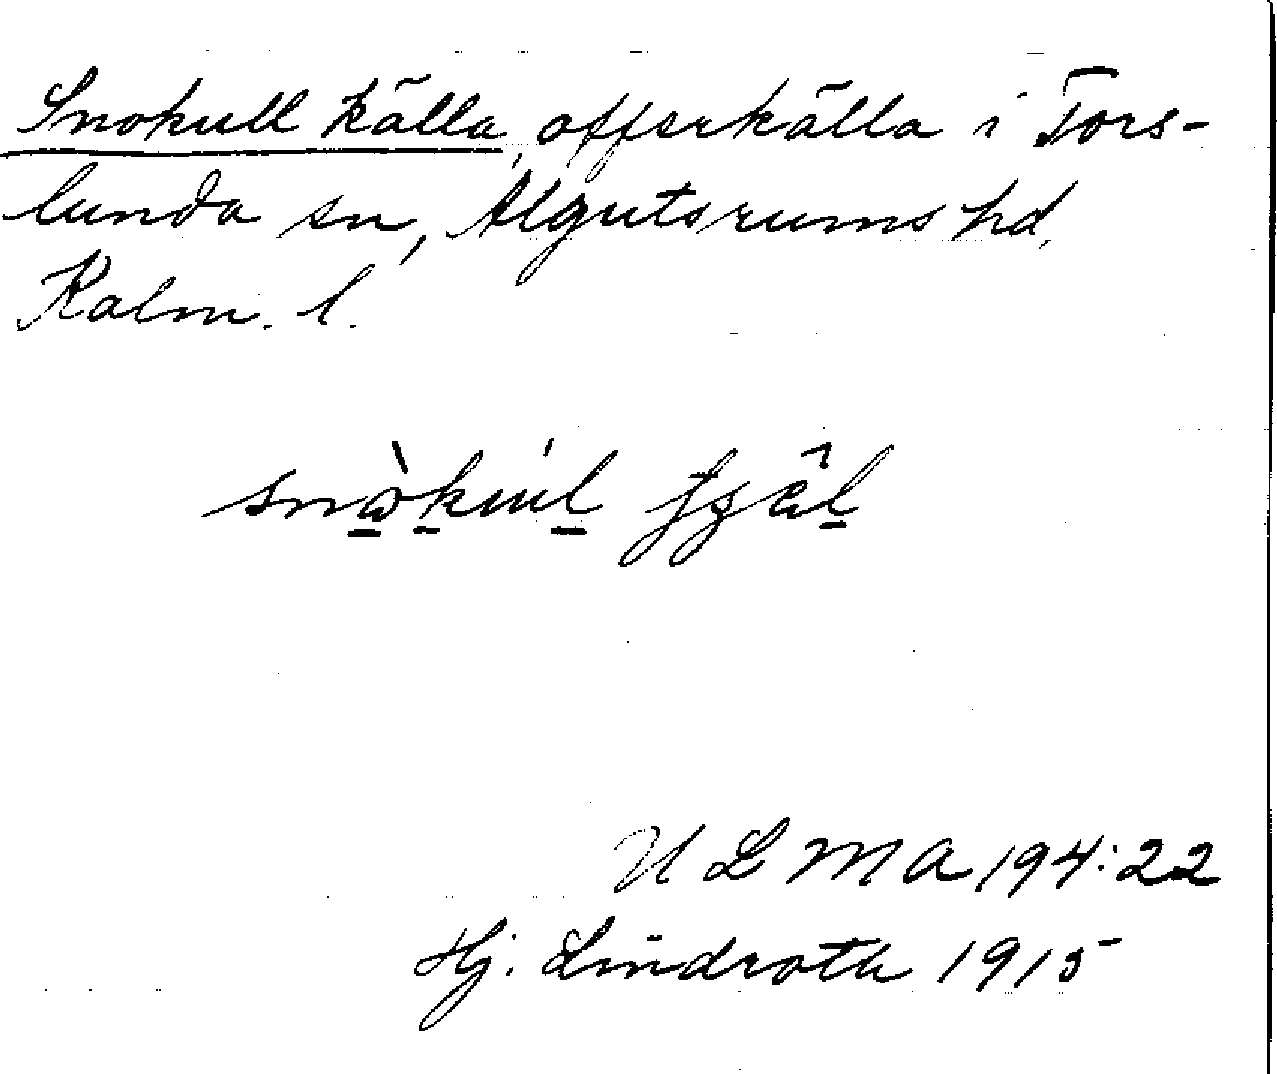 Snokull källa, offerkälla i Tors-
lunda sn, Algutsrums hd,
Kalm. l.
ULMA 194:22
Hj. Lindroth 1915